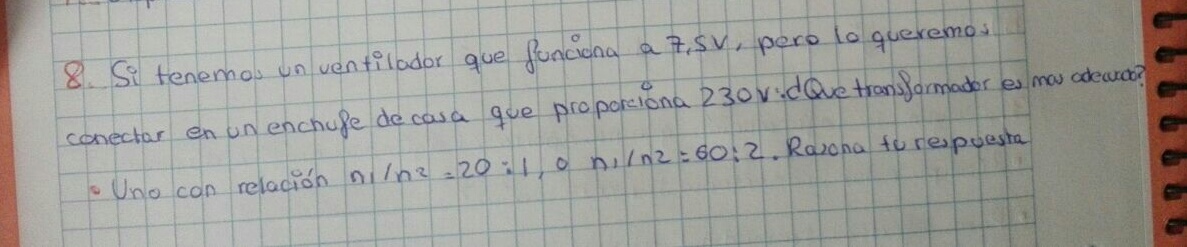 8. Si tenemos un ventilador que funciona a 7,5V, pero lo queremos
conectar en un enchufe de casa que proporciona 230V:¿Que transformador es mas adecuado?
• Uno con relación n1/n2=20:1, o n1/n2=60:2. Razona tu respuesta